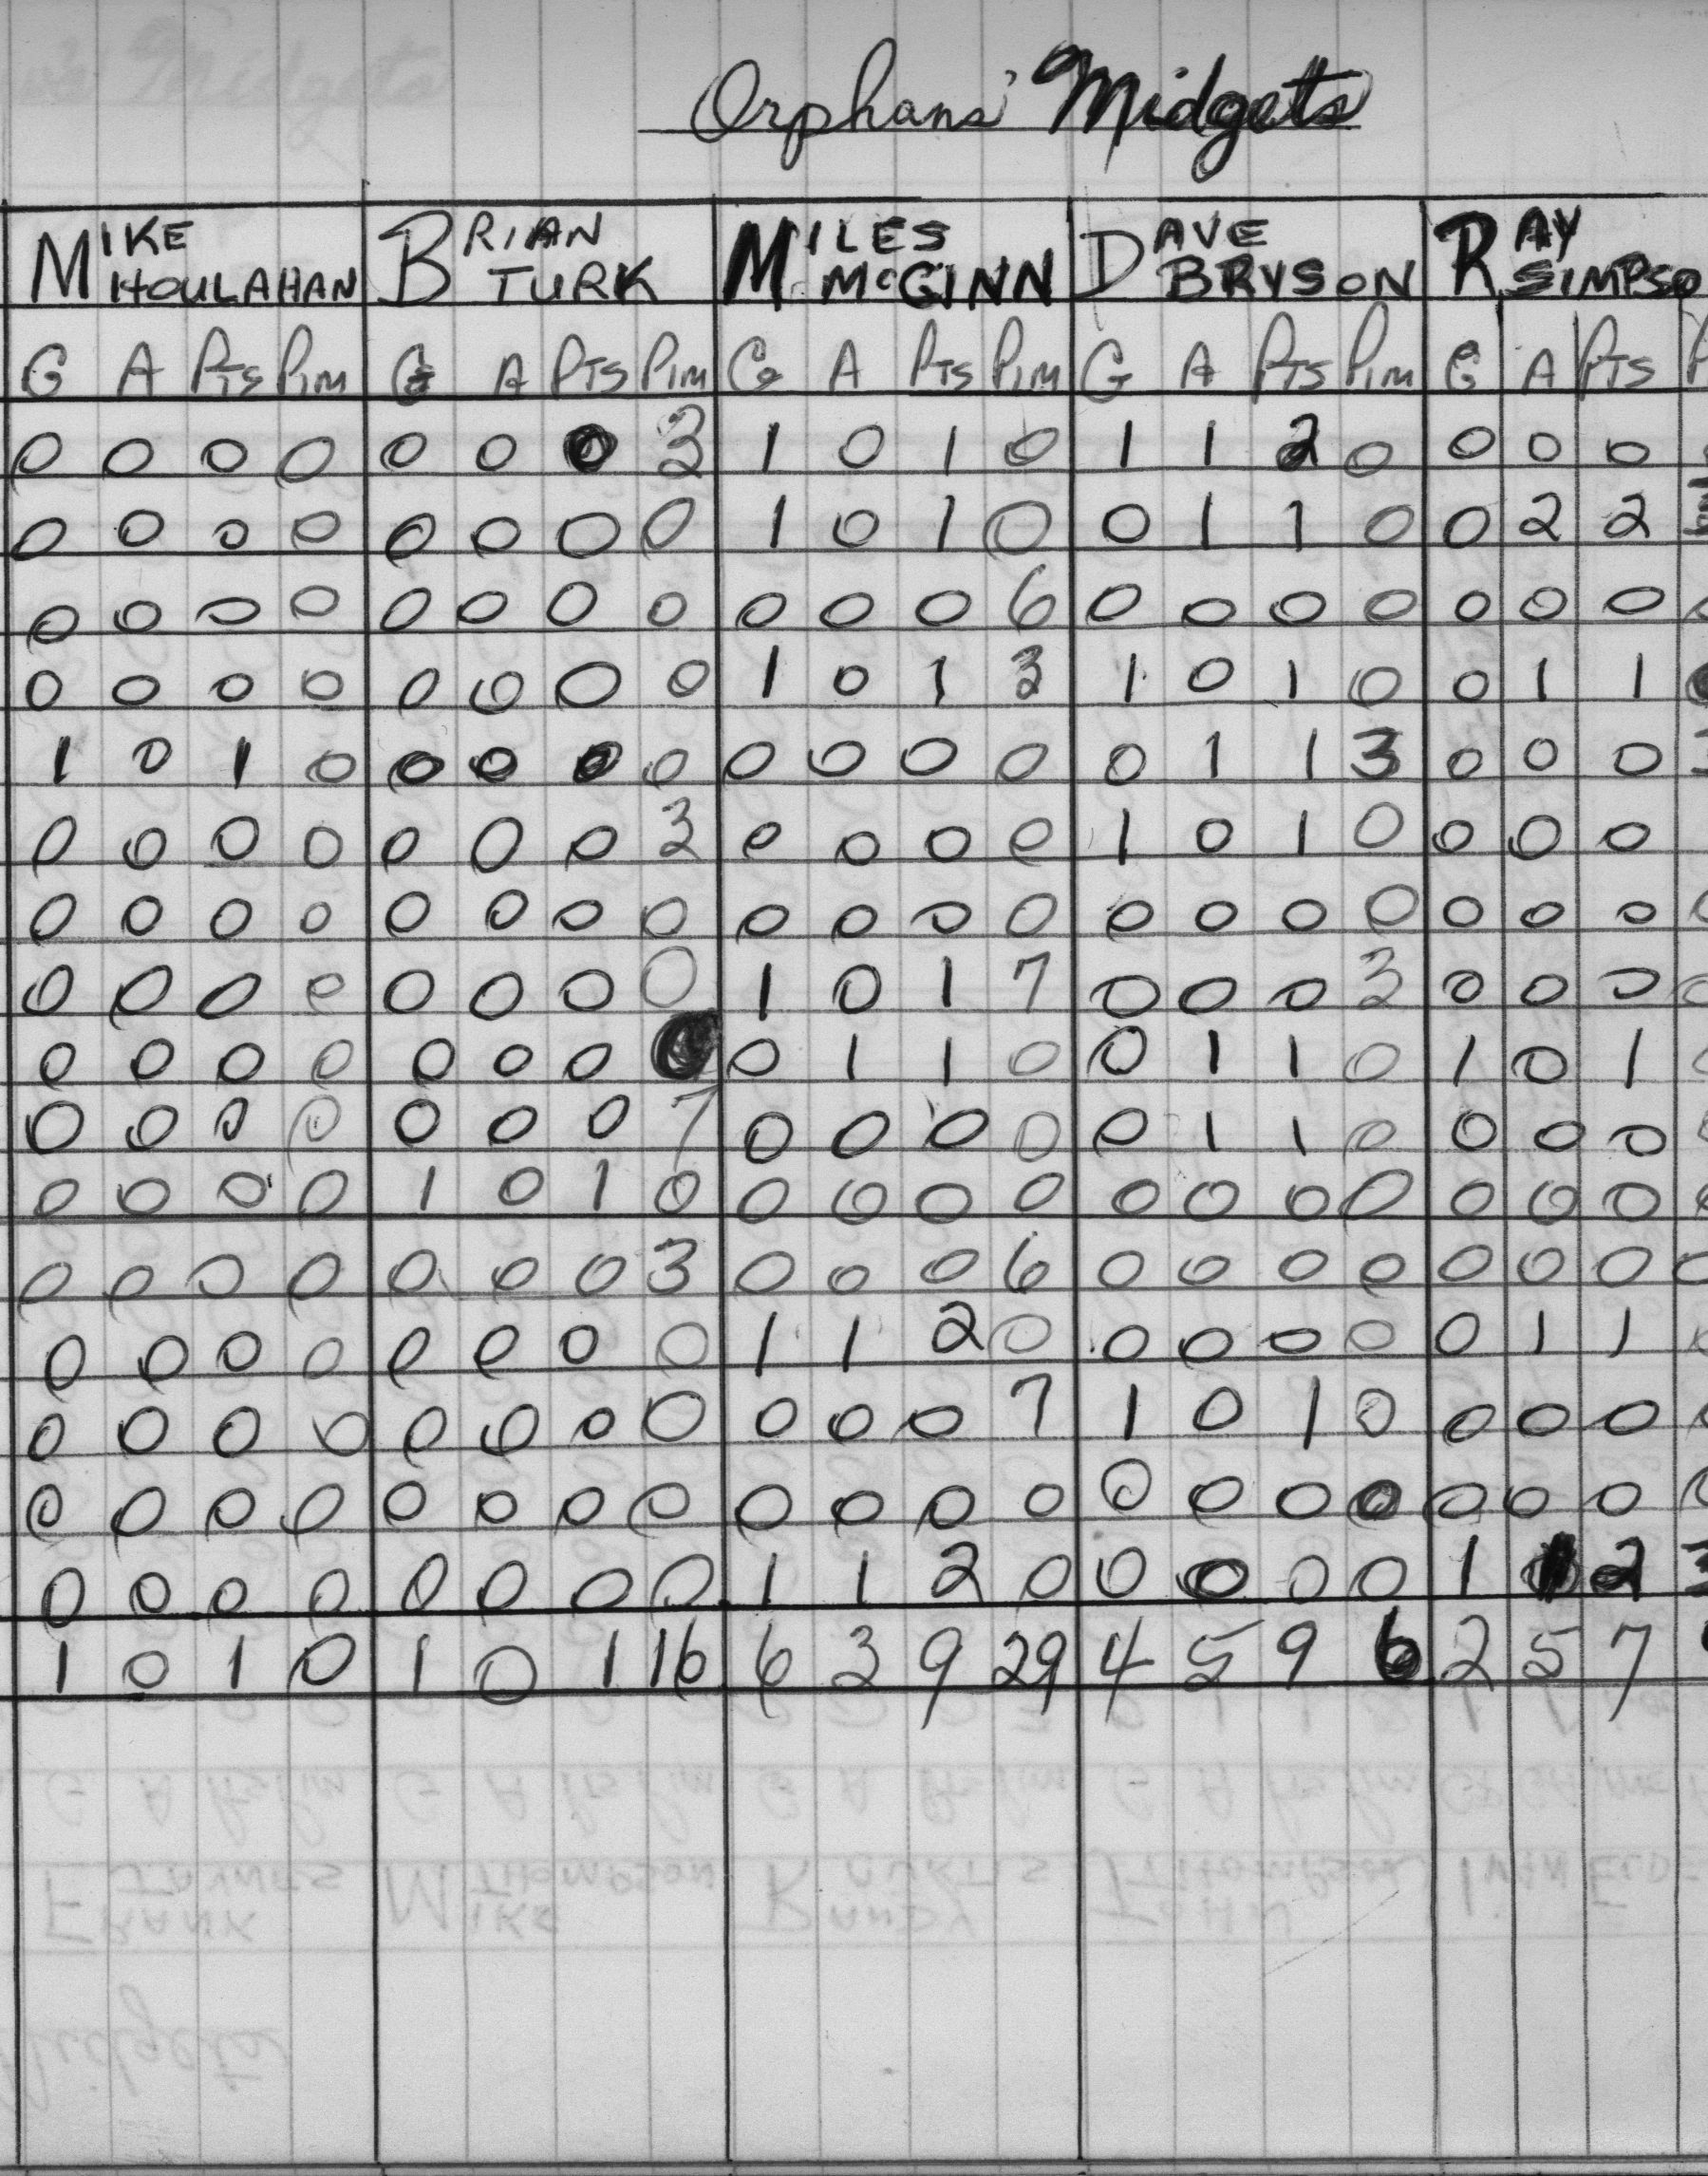 Orphans' Midgets
MIKE HOULAHAN BRIAN TURK MILES McGINN DAVE BRYSON RAY SIMPSO
G A Pts Pim G A Pts Pim G A Pts Pim G A Pts Pim G A Pts P
0 0 0 0 0 0 0 3 1 0 1 0 1 1 2 0 0 0 0
0 0 0 0 0 0 0 0 1 0 1 0 0 1 1 0 0 2 2
0 0 0 0 0 0 0 0 0 0 0 6 0 0 0 0 0 0 0
0 0 0 0 0 0 0 0 1 0 1 3 1 0 1 0 0 1 1
1 0 1 0 0 0 0 0 0 0 0 0 0 1 1 3 0 0 0 3
0 0 0 0 0 0 0 3 0 0 0 0 1 0 1 0 0 0 0
0 0 0 0 0 0 0 0 0 0 0 0 0 0 0 0 0 0 0 0
0 0 0 0 0 0 0 0 1 0 1 7 0 0 0 3 0 0 0 0
0 0 0 0 0 0 0 0 1 1 0 0 1 1 0 1 0 1 0
0 0 0 0 0 0 0 7 0 0 0 0 0 1 1 0 0 0 0
0 0 0 0 1 0 1 0 0 0 0 0 0 0 0 0 0 0 0
0 0 0 0 0 0 0 3 0 0 0 6 0 0 0 0 0 0 0 0
0 0 0 0 0 0 0 0 1 1 2 0 0 0 0 0 0 1 1
0 0 0 0 0 0 0 0 0 0 0 7 1 0 1 0 0 0 0
0 0 0 0 0 0 0 0 0 0 0 0 0 0 0 0 0 0 0 0
0 0 0 0 0 0 0 0 1 1 2 0 0 0 0 0 1 1 2 3
1 0 1 0 1 0 1 16 6 3 9 29 4 5 9 6 2 5 7